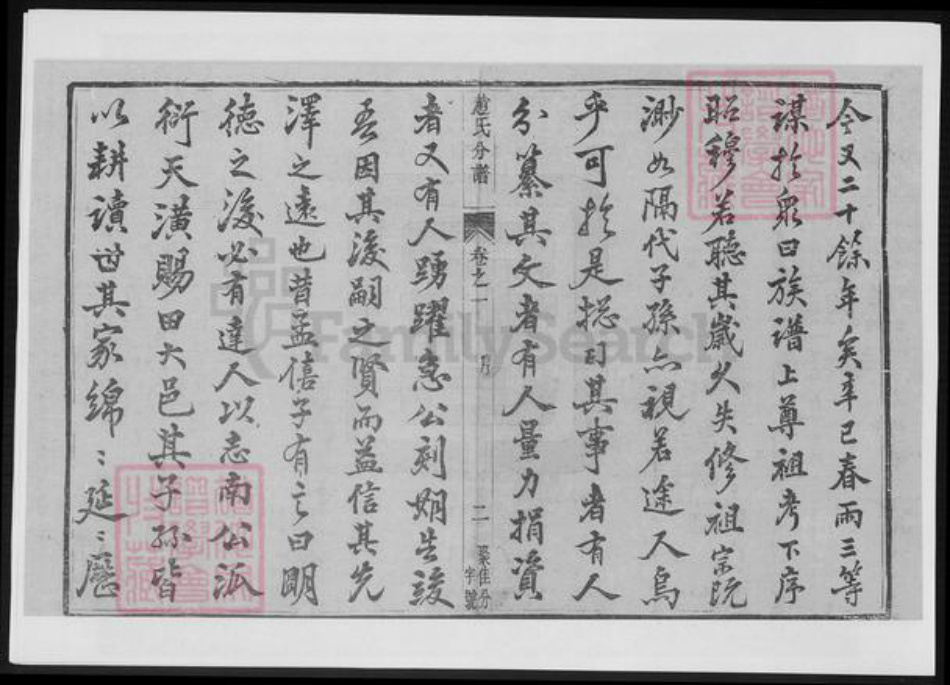 今又二十餘年矣辛巳春雨三等
謀於衆曰族譜上尊祖考下序
昭穆若聽其歲久失修祖宗既
渺如隔代子孫亦視若途人烏
乎可於是摠司其事者有人
分纂其文者有人量力捐資
趙氏分譜
卷之一
二
字號
者又有人踴躍急公刻期告竣
吾因其後嗣之賢而益信其先
澤之遠也昔孟僖子有言曰明
德之後必有達人以志南公派
衍天潢賜田大邑其子孫皆
以耕讀世其家綿〻延〻歷
FamilySearch